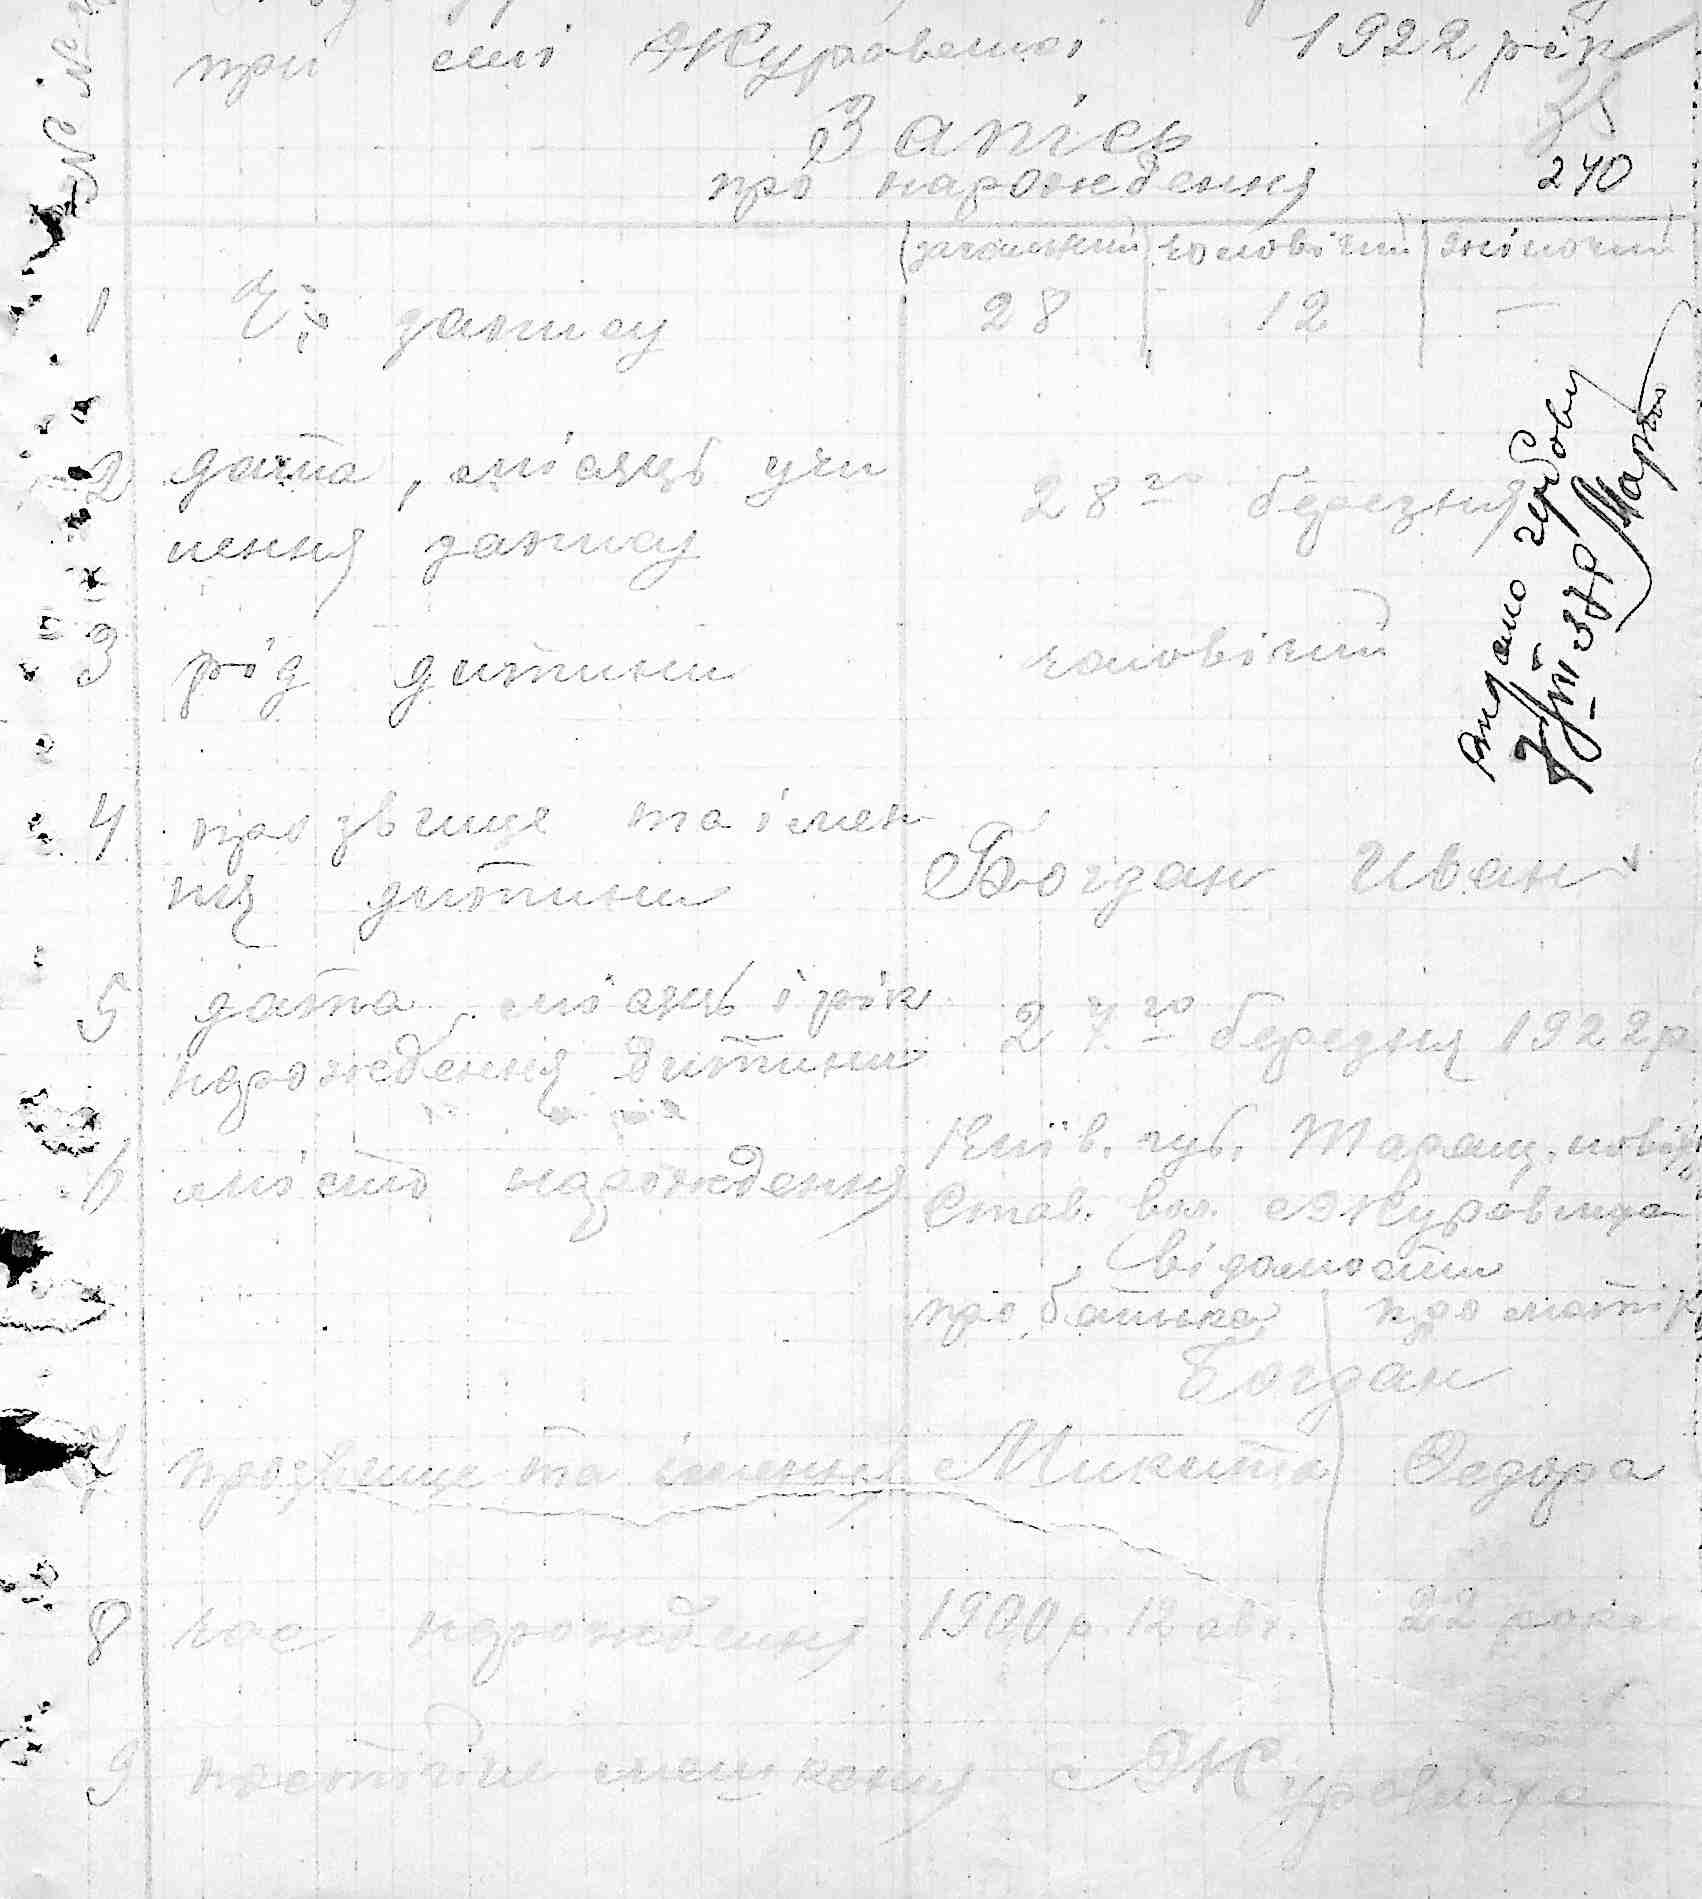 при селі Журавлисі 1922 рік
Запісь
про народження 240
загальний чоловічий жіночий
1 Ч: запису 28 12 —
2 дата, місяць учи
нення запису 28го березня
3 рід дитини чоловічий
4 прозвище та імен
ня дитини Богдан Иван
5 дата місяць і рік
народження дитини 27го березня 1922 р
6 місто народження Київ. губ. Таращ. повіту
Став. вол. с Журавлиха
відомости
про батька про матір
Богдан
7 прозвище та імення Микита Федора
8 час народження 1900 р. 12 авг. 22 роки
9 постійне мешкання с Журавлиха
Видано метрову
7/VIII 37 р
№ №